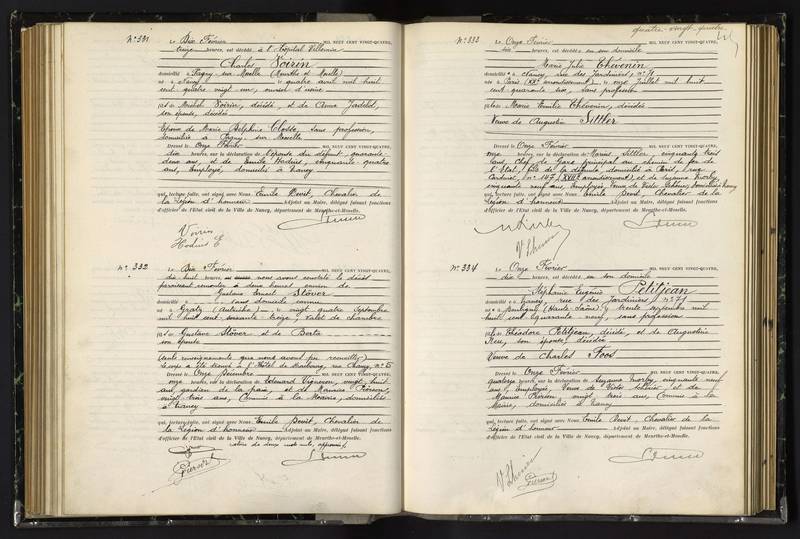 N° 331
Le Dix Février MIL NEUF CENT VINGT-QUATRE,
treize heures, est décédé à l'Hôpital Villemin
Charles Voirin
domicilié à Pagny sur Moselle (Meurthe et Moselle)
né à Nancy le quatre avril mil huit
cent quatre vingt un, ouvrier d'usine
fils de Michel Voirin, décédé, et de Anna
son épouse, décédée
Epoux de Marie Delphine Closse, sans profession,
domiciliée à Pagny sur Moselle
Dressé le Onze Février MIL NEUF CENT VINGT-QUATRE,
dix heures, sur la déclaration de l'épouse du défunt, quarante
deux ans, et de Emile Hodius, cinquante quatre
ans, Employé, domiciliés à Nancy
qui, lecture faite, ont signé avec Nous Emile Devit, Chevalier de
la Légion d'honneur Adjoint au Maire, délégué faisant fonctions
d'officier de l'Etat civil de la Ville de Nancy, département de Meurthe-et-Moselle.
Voirin
Hodius E
N° 332
Le Dix Février MIL NEUF CENT VINGT-QUATRE,
dix huit heures, nous avons constaté le décès
paraissant remonter à deux heures environ de
Gustave Ernest Stöver
domicilié sans domicile connu
né à Gratz (Autriche) le vingt quatre Septembre
mil huit cent soixante treize, valet de chambre
fils de Gustave Stöver et de Berta
son épouse
(seuls renseignements que nous avons pu recueillir)
Le corps a été trouvé à l'Hôtel de Marbourg, rue Chanzy, n° 5
Dressé le Onze Février MIL NEUF CENT VINGT-QUATRE,
onze heures, sur la déclaration de Edouard Vigneron, vingt huit
ans, gardien de la paix, et de Maurice Piérson,
vingt trois ans, Commis à la Mairie, domiciliés
à Nancy
qui, lecture faite, ont signé avec Nous Emile Devit, Chevalier de
la Légion d'honneur Adjoint au Maire, délégué faisant fonctions
d'officier de l'Etat civil de la Ville de Nancy, département de Meurthe-et-Moselle.
Pierson
quatre-vingt-quatre
N° 333
Le Onze Février MIL NEUF CENT VINGT-QUATRE,
heures, est décédée en son domicile
Marie Julie Thévenin
domiciliée à Nancy, rue des Jardiniers, n°
née à Paris le onze Juillet mil huit
cent quarante six, sans profession
fille de Marie Emilie Thévenin, décédée
Veuve de Augustin Sittler
Dressé le Onze Février MIL NEUF CENT VINGT-QUATRE,
onze heures, sur la déclaration de Marius Sittler, cinquante trois
ans, Chef de Gare principal au chemin de fer de
l'Etat, fils de la défunte, domicilié à Paris, rue
Cardinet, n° 147 (XVIIe arrondissement) et de Suzanne Morby,
cinquante neuf ans, Employée, Veuve de Victor domiciliée à Nancy
qui, lecture faite, ont signé avec Nous Emile Devit Chevalier de la
Légion d'honneur Adjoint au Maire, délégué faisant fonctions
d'officier de l'Etat civil de la Ville de Nancy, département de Meurthe-et-Moselle.
N° 334
Le Onze Février MIL NEUF CENT VINGT-QUATRE,
dix heures, est décédée en son domicile
Stéphanie Eugénie Petitjean
domiciliée à Nancy, rue des Jardiniers n° 71
née à (Haute Saône) le trente septembre mil
huit cent quarante neuf, sans profession
fille de Théodore Petitjean, décédé, et de Augustine
son épouse, décédée
Veuve de Charles Foos
Dressé le Onze Février MIL NEUF CENT VINGT-QUATRE,
quatorze heures, sur la déclaration de Suzanne Morby, cinquante neuf
ans, Employée, Veuve de Victor et de
Maurice Piérson, vingt trois ans, Commis à la
Mairie, domiciliés à Nancy
qui, lecture faite, ont signé avec Nous Emile Devit, Chevalier de la
Légion d'honneur Adjoint au Maire, délégué faisant fonctions
d'officier de l'Etat civil de la Ville de Nancy, département de Meurthe-et-Moselle.
Pierson